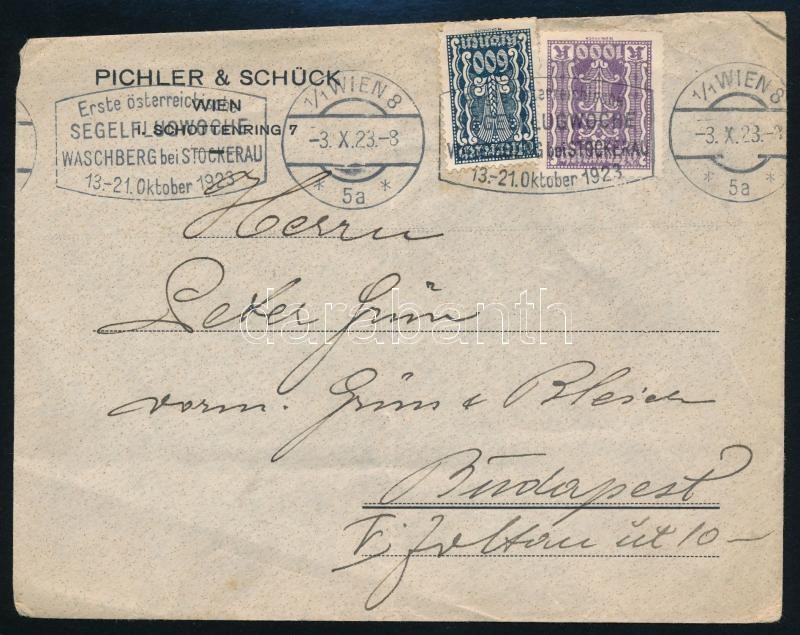 PICHLER & SCHÜCK
WIEN
I., SCHOTTENRING 7
Erste österreichische
SEGELFLUGWOCHE
WASCHBERG bei STOCKERAU
13.-21. Oktober 1923
1/1 WIEN 8
-3. X. 23.-8
* 5a *
600
1000 K
FLUGWOCHE
bei STOCKERAU
13.-21. Oktober 1923
1/1 WIEN 8
-3. X. 23.-8
* 5a *
Herrn
Peter Grün
vorm. Grün & Bleich
Budapest
V, Zoltán út 10-
darabanth